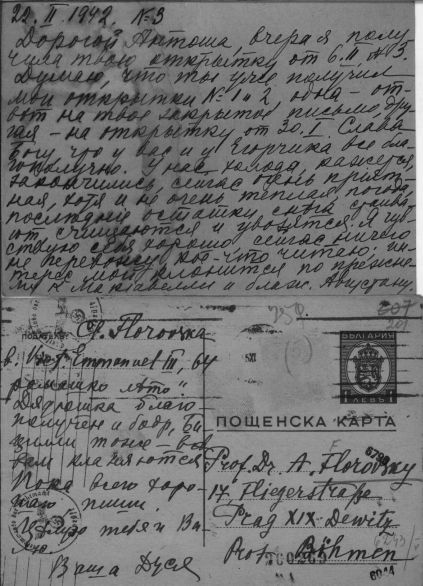 22. II 1942. № 3
Дорогой Антоша, вчера я полу
чила твою открытку от 6.II № 3.
Думаю, что ты уже получил
мои открытки № 1 и 2, одна – от-
вет на твое закрытое письмо, дру
гая – на открытку от 30.I. Слава
Богу что у вас и у Егорчика все бла
гополучно. У нас холода, кажется,
закончились, сейчас очень прият-
ная, хотя и не очень теплая погода,
последние остатки снега
счищаются и увозятся. Я чув
ствую себя хорошо сейчас ничего
не перевожу. Кое-что читаю; ин-
терес мой клонится по прежне
му к Макиавелли и блаж. Августину.
Florovska
Emmanuel III, 64
Дядюшка благо-
получен и бодр.
тоже – все
вам кланяются
Пока всего хоро-
шего. пиши.
тебя и
Ваша Дуся
БЪЛГАРИЯ
1 ЛЕВЪ 1
ПОЩЕНСКА КАРТА
Prof. Dr. A. Florovsky
17, Fliegerstraße
Prag XIX-Dewitz
Böhmen